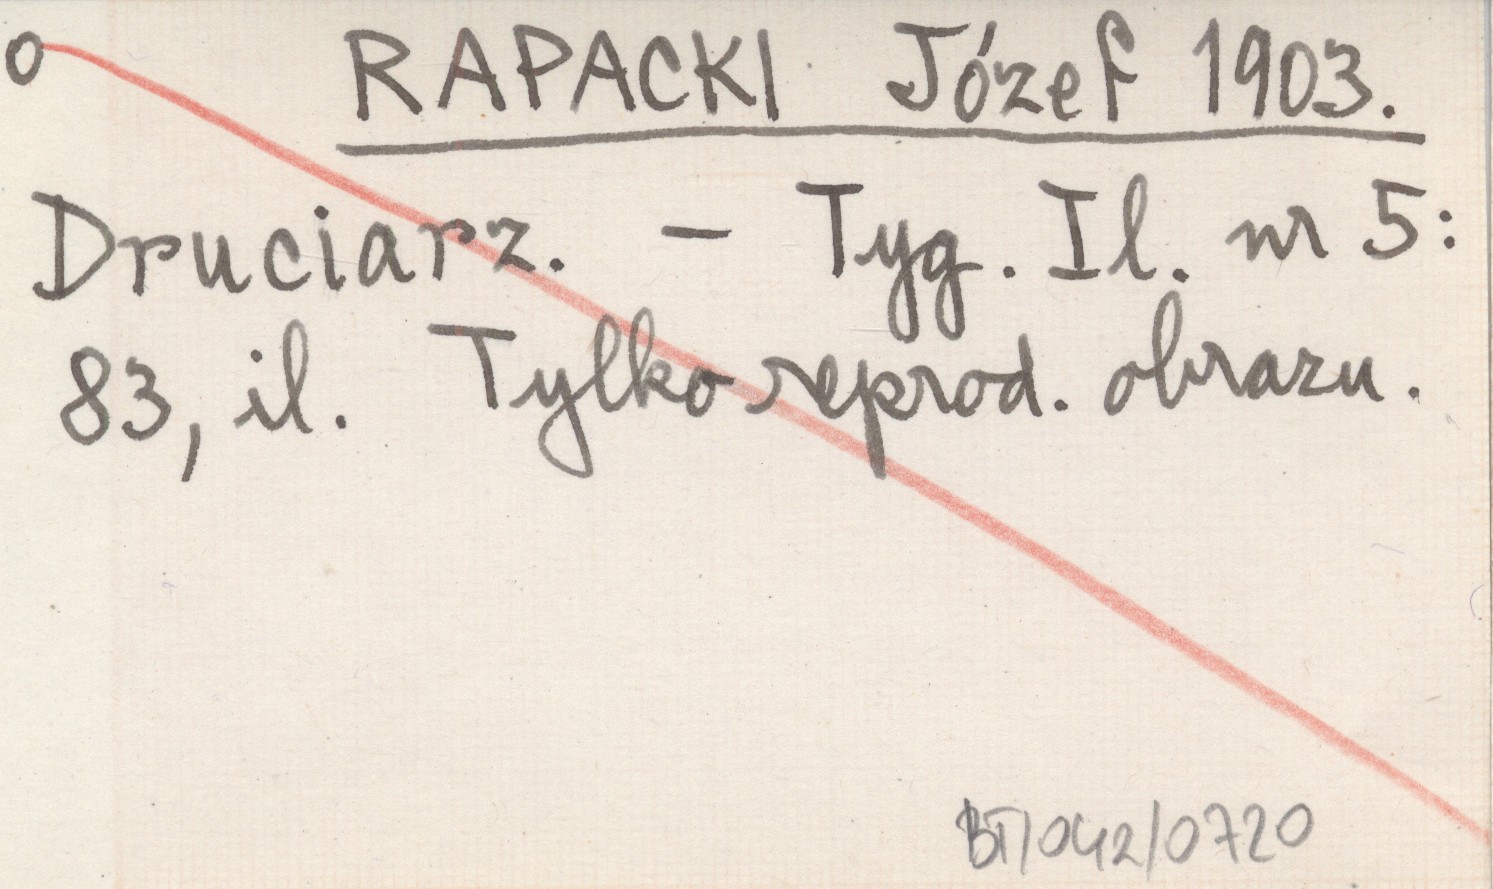 o RAPACKI Józef 1903.
Druciarz. – Tyg. Il. nr 5:
83, il. Tylko reprod. obrazu.
BT/042/0720